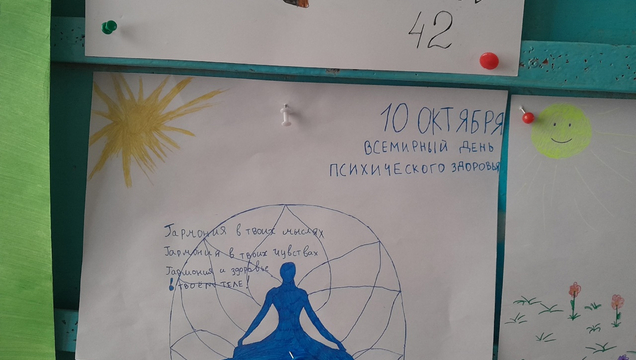 42
10 ОКТЯБРЯ
ВСЕМИРНЫЙ ДЕНЬ
ПСИХИЧЕСКОГО ЗДОРОВЬЯ
Гармония в твоих мыслях
Гармония в твоих чувствах
Гармония и здоровье
в твоем ТЕЛЕ!